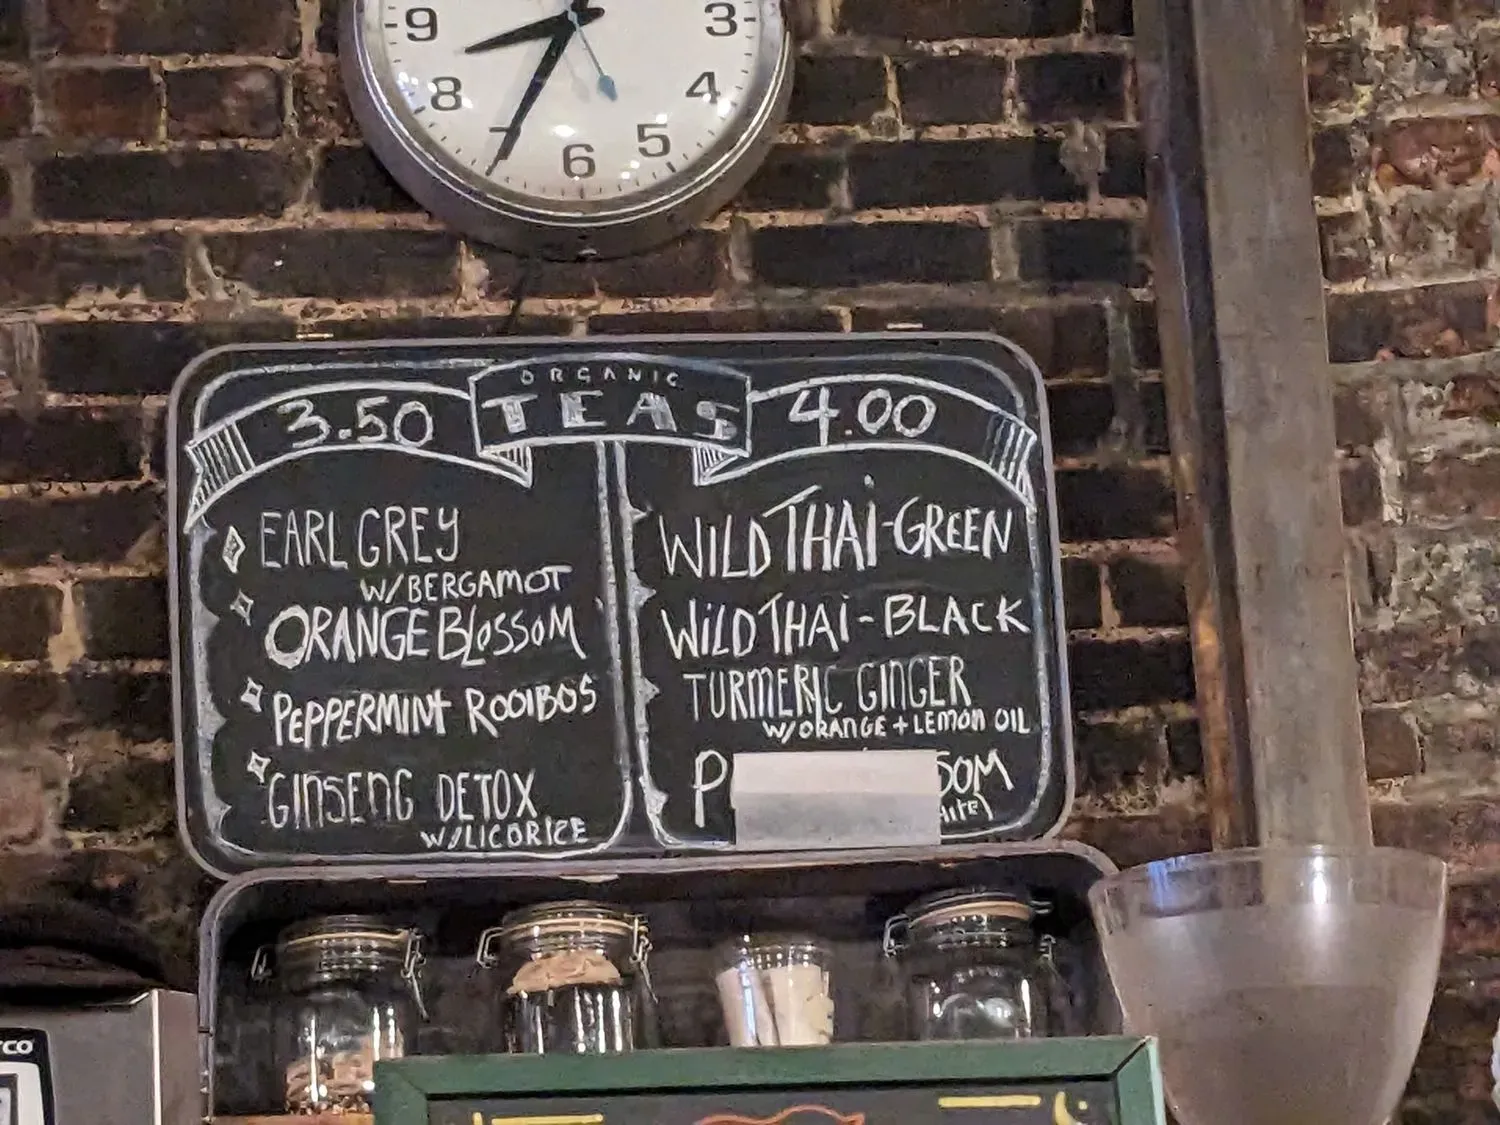 9 3
8 4
7 6 5
ORGANIC
3.50 TEAS 4.00
EARL GREY
W/BERGAMOT
ORANGE BLOSSOM
PEPPERMINT ROOIBOS
GINSENG DETOX
W/LICORICE
WILD THAI-GREEN
WILD THAI-BLACK
TURMERIC GINGER
W/ORANGE + LEMON OIL